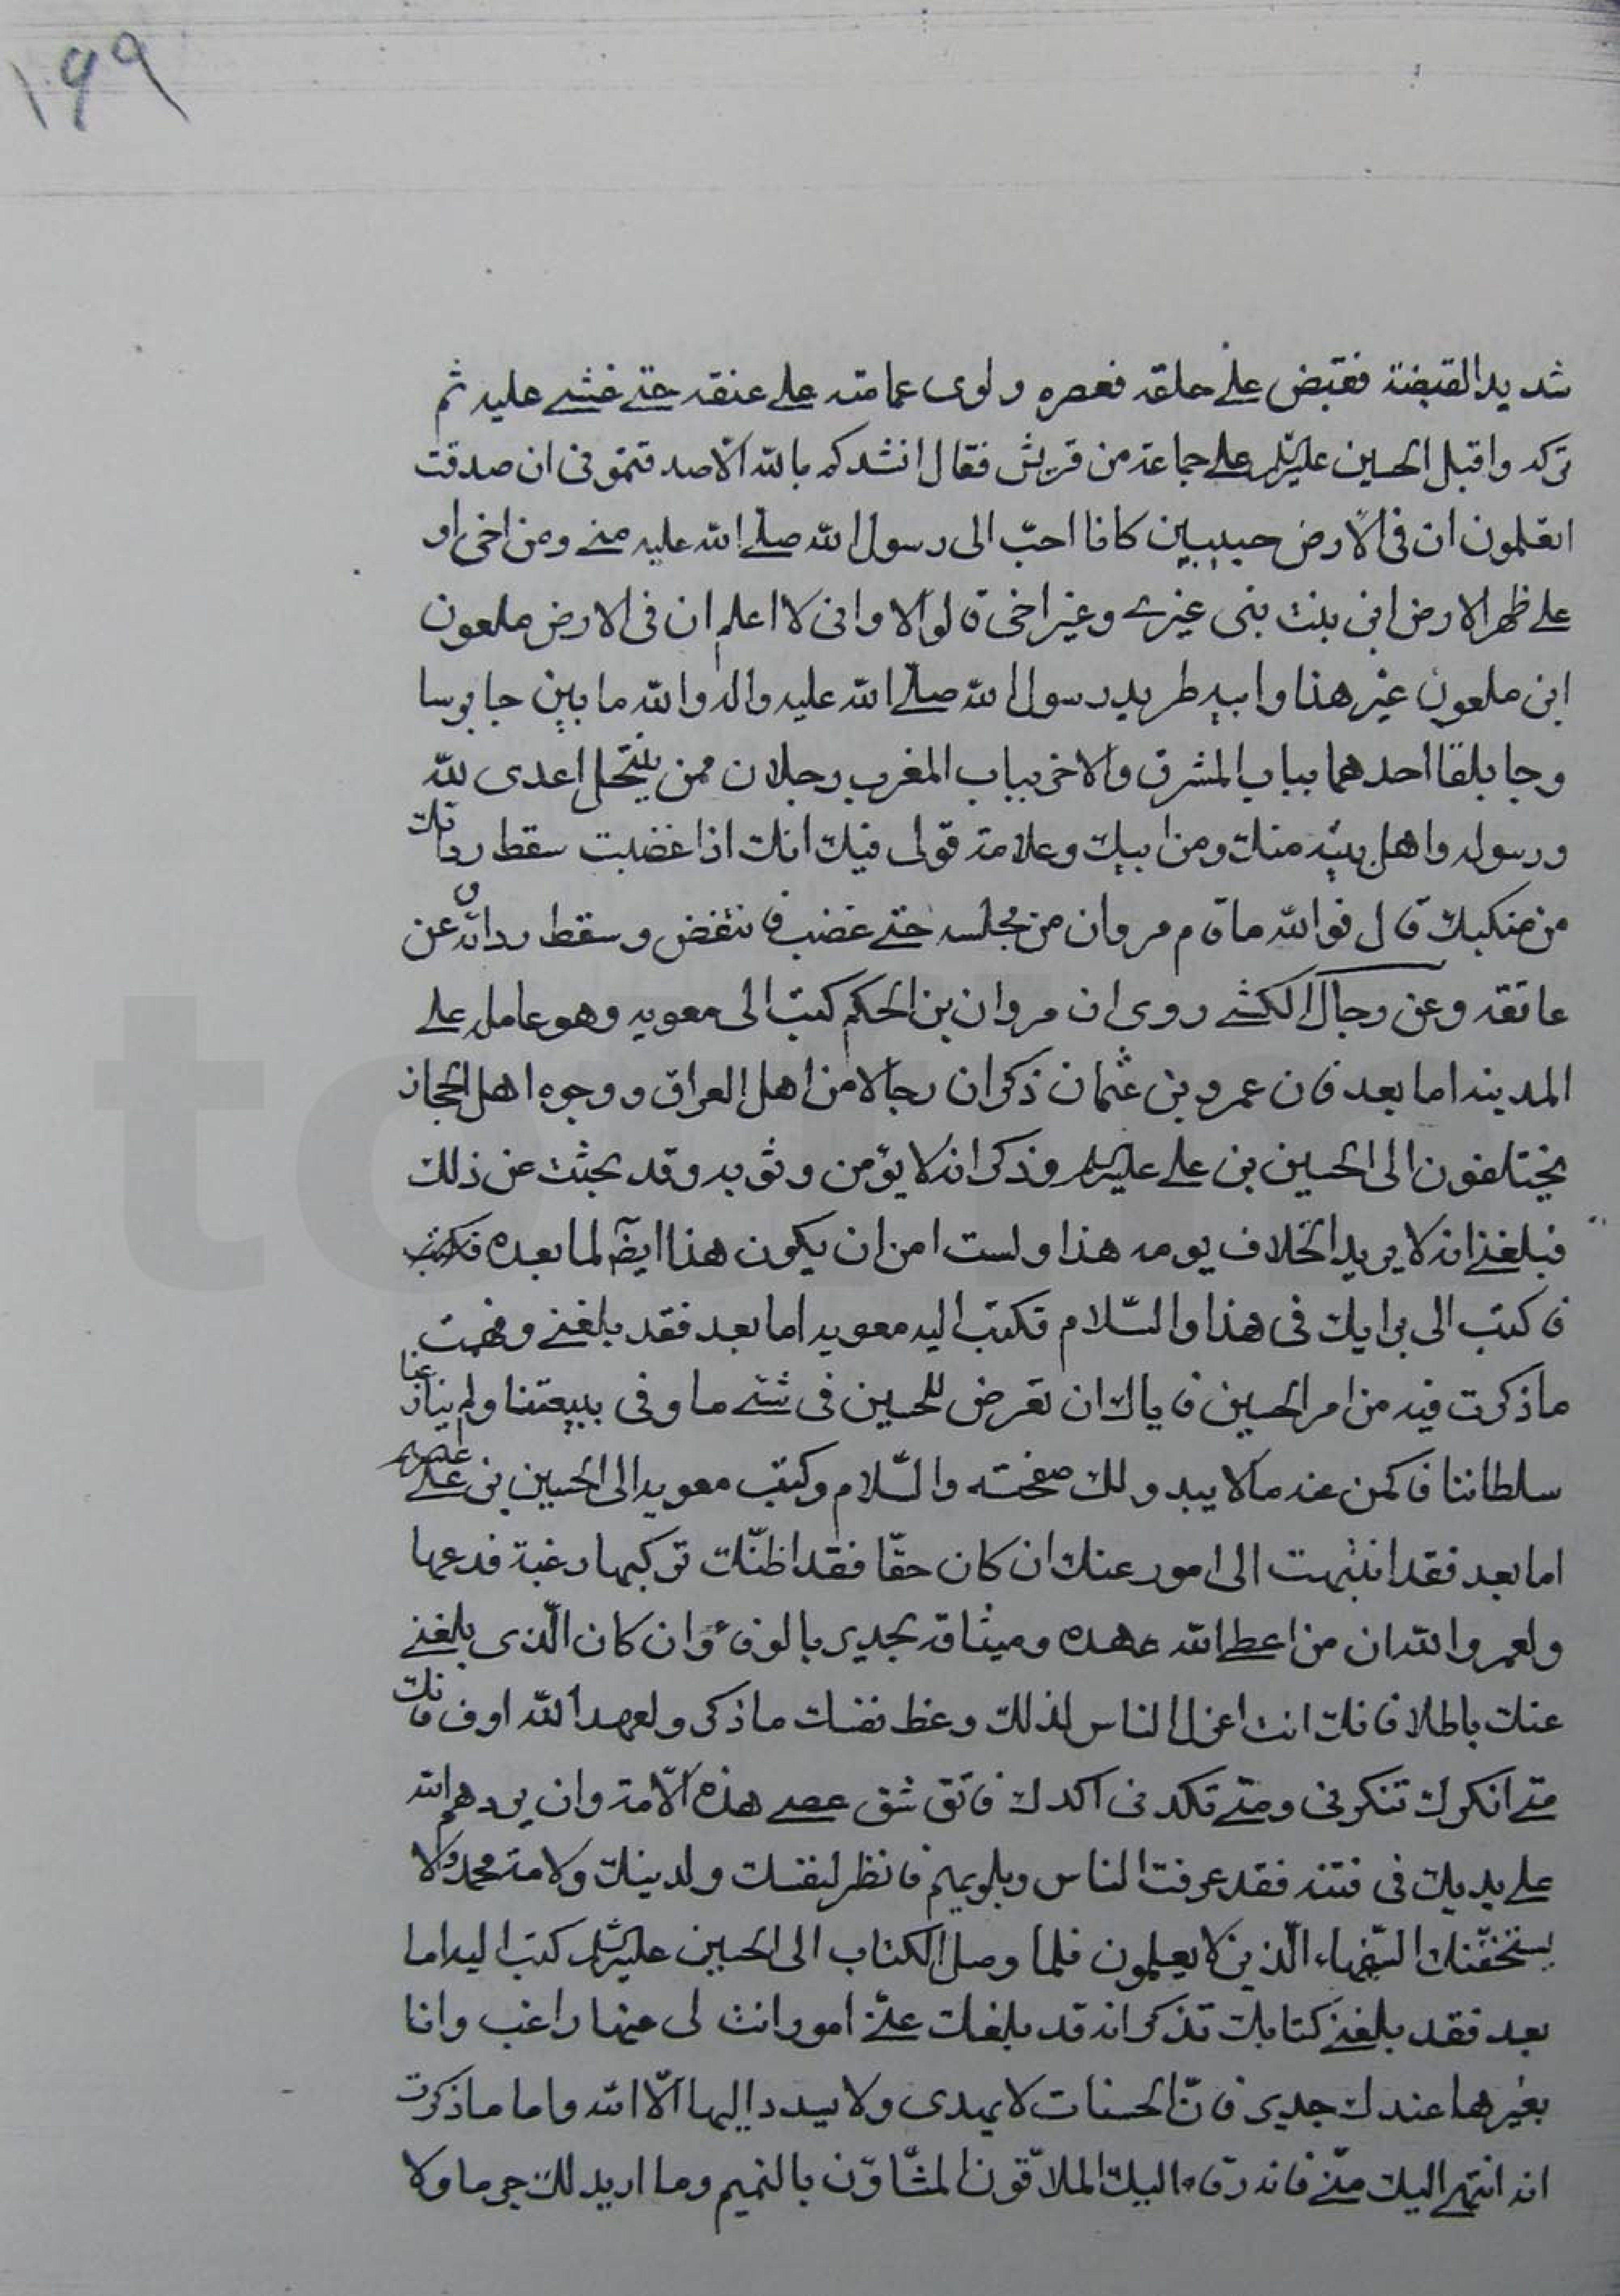 ١٩٩
شديد القبضة فقبض على حلقه فعصره ولوى عمامته على عنقه حتى غشى عليه ثم
تركه واقبل الحسين عليه السلام على جماعة من قريش فقال انشدكم بالله الّا صدقتمونى ان صدقت
اتعلمون ان فى الارض حبيبين كانا احبّ الى رسول الله صلى الله عليه منى ومن اخى او
على ظهر الارض ابن بنت نبى غيرى وغير اخى قالوا لا وانى لا اعلم ان فى الارض ملعون
ابن ملعون غير هذا وابيه طريد رسول الله صلّى الله عليه واله والله ما بين جابرسا
وجابلقا احدهما بباب المشرق والاخر بباب المغرب رجلان ممن ينتحل اعدى لله
ورسوله واهل بيته منك ومن ابيك وعلامة قولى فيك انك اذا غضبت سقط ردائك
من منكبك قال فوالله ما قام مروان من مجلسه حتى غضب فانتفض وسقط ردائه عن
عاتقه وعن رجال الكشى روى ان مروان بن الحكم كتب الى معويه وهو عامله على
المدينه اما بعد فان عمرو بن عثمان ذكر ان رجالا من اهل العراق ووجوه اهل الحجاز
يختلفون الى الحسين بن على عليه السلام وذكر انه لا يؤمن وثوبه وقد بحثت عن ذلك
فبلغنى انه لا يريد الخلاف يومه هذا ولست امن ان يكون هذا ايضا لما بعده فكتب
فاكتب الى برايك فى هذا والسّلام فكتب اليه معويه اما بعد فقد بلغنى وفهمت
ما ذكرت فيه من امر الحسين فاياك ان تعرض للحسين فى شئ ما وفى ببيعتنا ولم ينازعنا
سلطاننا فاكمن عنه مالا يبد ولك صفحته والسّلام وكتب معويه الى الحسين بن على عليهما
اما بعد فقد انتهت الى امور عنك ان كان حقّا فقد اظنّك تركبها رغبة فدعها
ولعمر والله ان من اعطى الله عهده وميثاقه بجدير بالوفاء وان كان الّذى بلغنى
عنك باطلا فانك انت اعزل الناس لذلك وعظ نفسك ماذكر ولعهد الله اوف فانك
متى انكرك تنكرنى ومتى تكدنى اكدك فاتق شق عصى هذه الامّة وان يردهم الله
على يديك فى فتنه فقد عرفت الناس وبلوتهم فانظر لنفسك ولدينك ولامة محمد ولا
يستخفّنك السّفهاء الّذين لا يعلمون فلما وصل الكتاب الى الحسين عليه السلام كتب اليه اما
بعد فقد بلغنى كتابك تذكر انه قد بلغك عنّى امور انت لى عنها راغب وانا
بغيرها عندك جدير فانّ الحسنات لا يهدى ولا يسدد اليها الّا الله واما ما ذكرت
انه انتهى اليك منّى فانه رقاه اليك الملاقون المشّاؤن بالنميم وما اريد لك حرما ولا